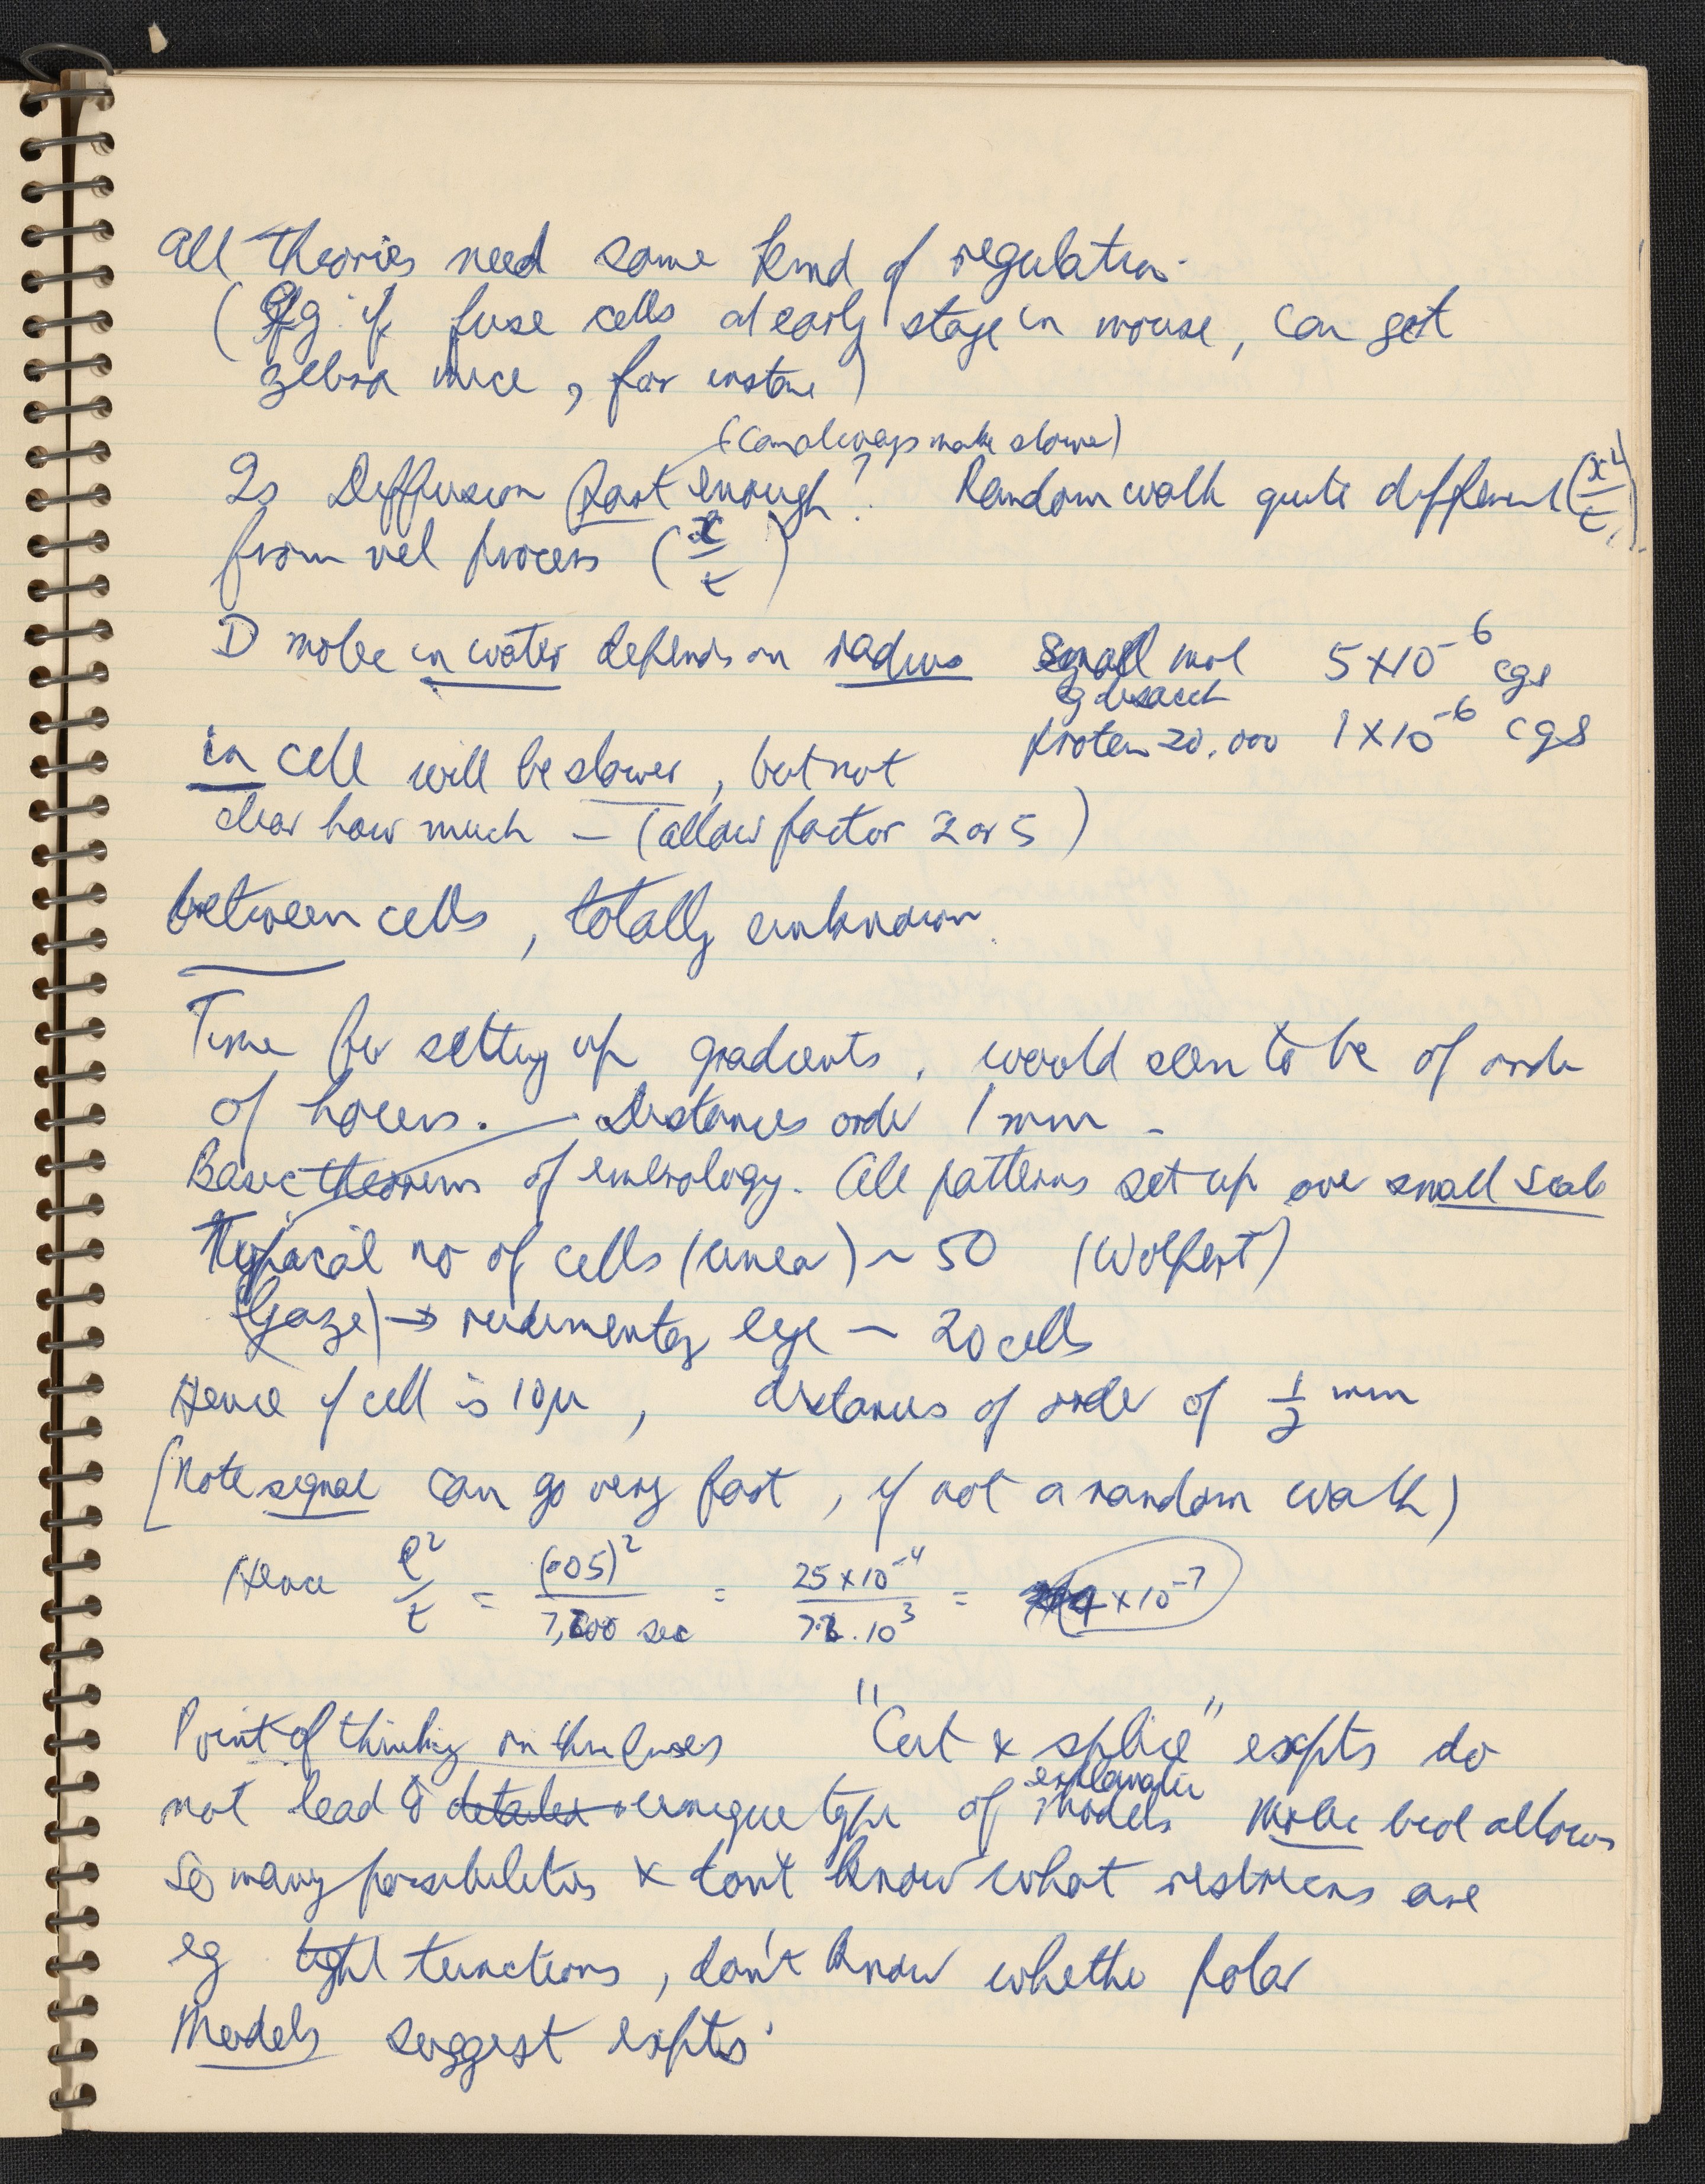 All theories need some kind of regulation.
(Eg if fuse cells at early stage in mouse, can get
zebra mice, for instance)
(can always make slower)
Is Diffusion fast enough? Random walk quite different (x²/t)
from vel process (x/t)
D molec in water depends on radius small mol 5 × 10⁻⁶ cgs
eg disacch
protein 20,000 1 × 10⁻⁶ cgs
in cell will be slower, but not
clear how much – (allow factor 2 or 5)
between cells, totally unknown.
Time for setting up gradients, would seem to be of order
of hours. — Distances order 1 mm –
Basic theorems of embrology. All patterns set up over small scale
Typical no of cells (linear) ~ 50 (Wolpert)
(Gaze) → rudimentary eye ~ 20 cells
Hence if cell is 10μ, distances of order of ½ mm
[Note signal can go very fast, if not a random walk)
Hence ℓ²/t = (·05)²/7,200 sec = 25 × 10⁻⁴/7·2 . 10³ = 4 × 10⁻⁷
Point of thinking on these lines "Cut & splice" expts do
not lead to detailed unique type of explanatory models Molec biol allows
so many possibilities & don't know what restrictions are
eg tight junctions, don't know whether polar
Models suggest expts.